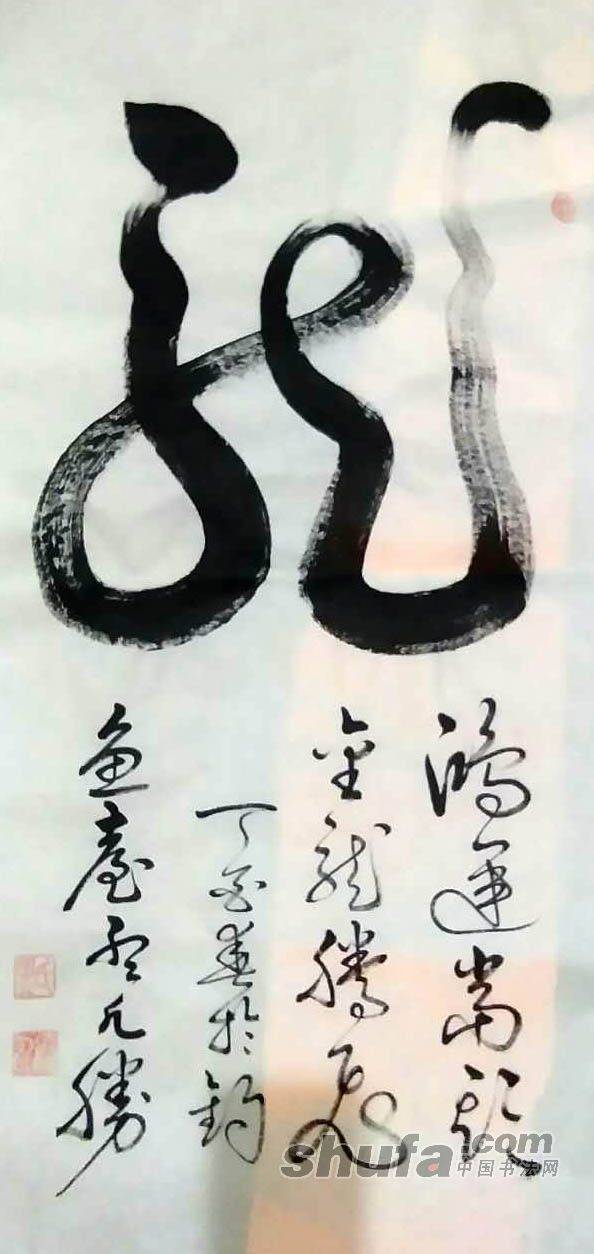 龍
鴻運當頭
金龍騰飛
丁酉春於釣
魚臺孔凡勝
shufa.com
中国书法网